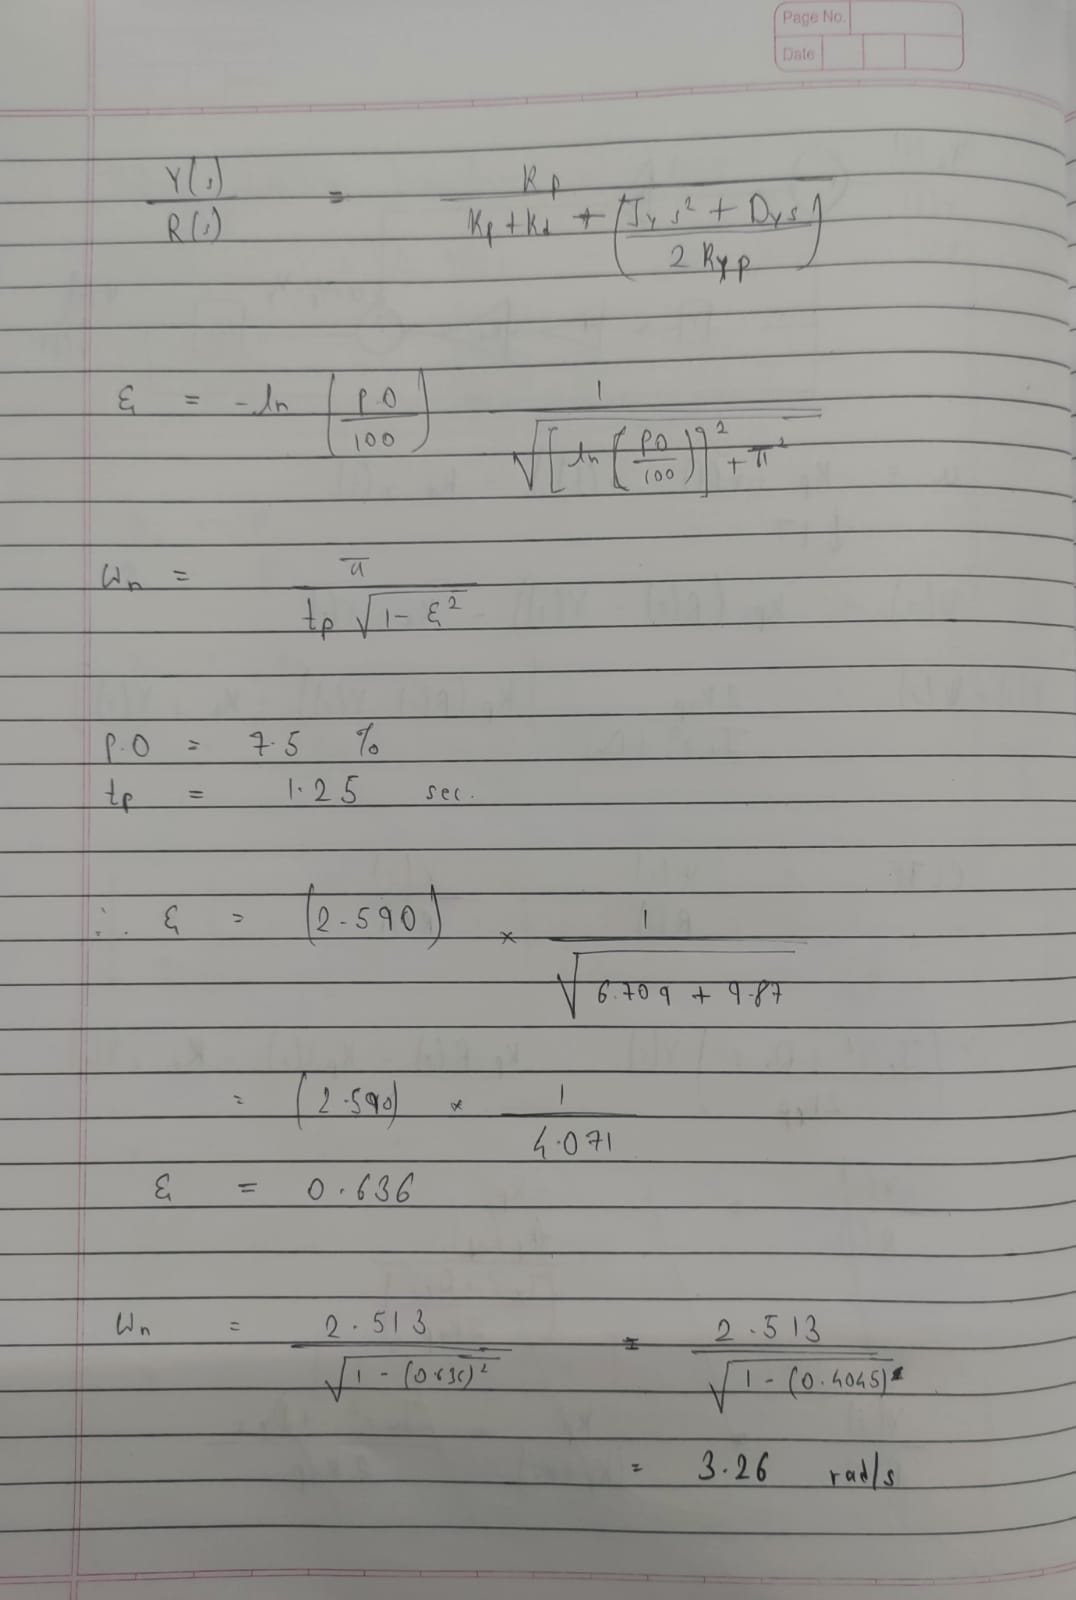 Page No.
Date
Y(s) / R(s) = Kp / (Kp + Kd + (Jy s² + Dy s / 2 Kyp))
ξ = -ln (P.O / 100) 1 / √([ln (PO / 100)]² + π²)
ωn = π / (tp √(1 - ξ²))
P.O = 7.5 %
tp = 1.25 sec.
∴ ξ = (2.590) × 1 / √(6.709 + 9.87)
= (2.590) × 1 / 4.071
ξ = 0.636
ωn = 2.513 / √(1 - (0.636)²) = 2.513 / √(1 - (0.4045))
= 3.26 rad/s